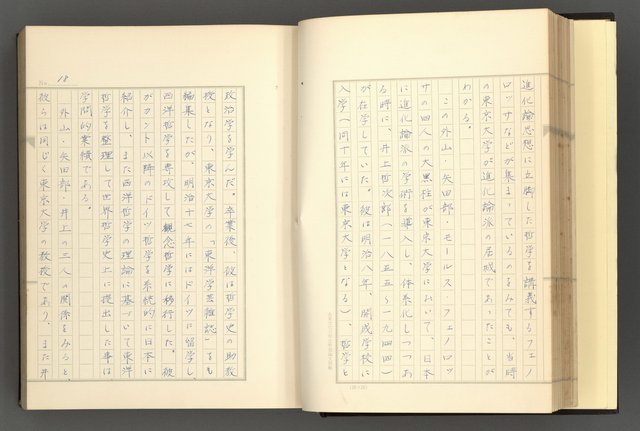 進化論思想に立脚した哲学を講義するフェノ
ロッサなどが集まっているのをみても、当時
の東京大学が進化論派の居城であったことが
わかる。
この外山・矢田部・モールス・フェノロッ
サの四人の大黒柱が東京大学において、日本
に進化論派の学術を導入し、体系化しつつあ
る時に、井上哲次郎(一八五五〜一九四四)
が在学していた。彼は明治八年、開成学校に
入学(同十年には東京大学となる)、哲学と
No. 18
政治学を学んだ。卒業後、彼は哲学史の助教
授となり、東京大学の「東洋学芸雑誌」をも
編集したが、明治十七年にはドイツに留学し
西洋哲学を専攻して観念哲学に移行した。彼
がカント以降のドイツ哲学を系統的に日本に
紹介し、また西洋哲学の理論に基づいて東洋
哲学を整理して世界哲学史上に提出した事は
学問的業績である。
外山・矢田部・井上の三人の関係をみると、
彼らは同じく東京大学の教授であり、また井
(20×20)